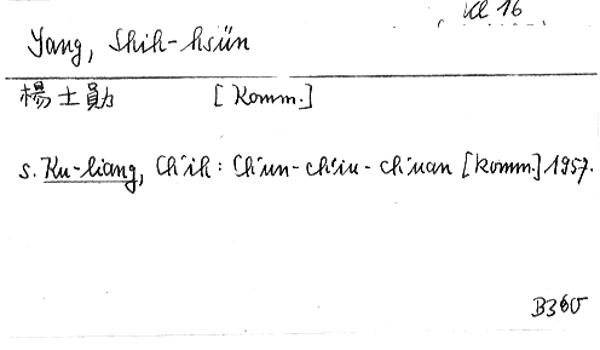 Kl 16
Yang, Shih-hsün
楊士勛 [Komm.]
s. Ku-liang, Ch'ih: Ch'un-ch'iu-ch'uan [komm.] 1957.
B360